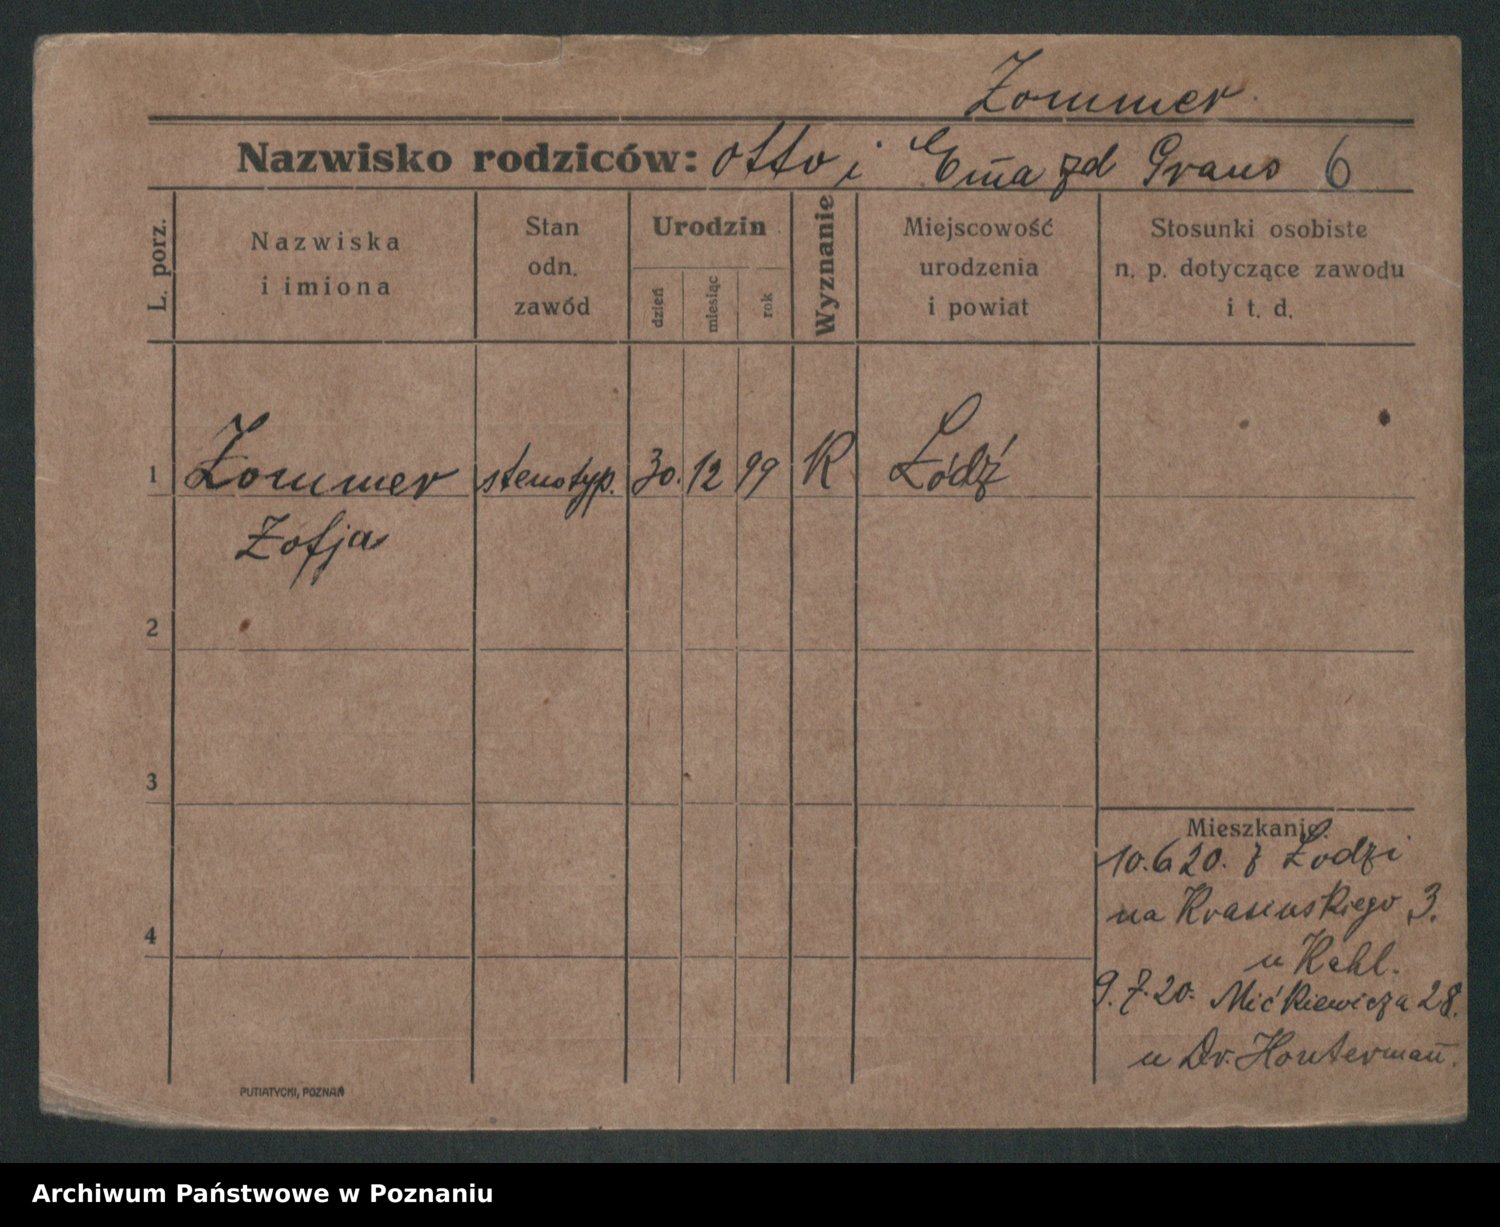 Zommer
Nazwisko rodziców: Otto i Em̄a zd Graus 6
L. porz.
Nazwiska
i imiona
Stan
odn.
zawód
Urodzin
dzień
miesiąc
rok
Wyznanie
Miejscowość
urodzenia
i powiat
Stosunki osobiste
n. p. dotyczące zawodu
i t. d.
1 Zommer stenotyp. 30. 12 99 R Łódź
Zofja
2
3
4
Mieszkanie:
10.6 20. z Łodzi
na Krasinskiego 3.
u Kahl.
9.7.20. Mićkiewicza 28.
u Dr. Houterman̄.
PUTIATYCKI, POZNAŃ
Archiwum Państwowe w Poznaniu